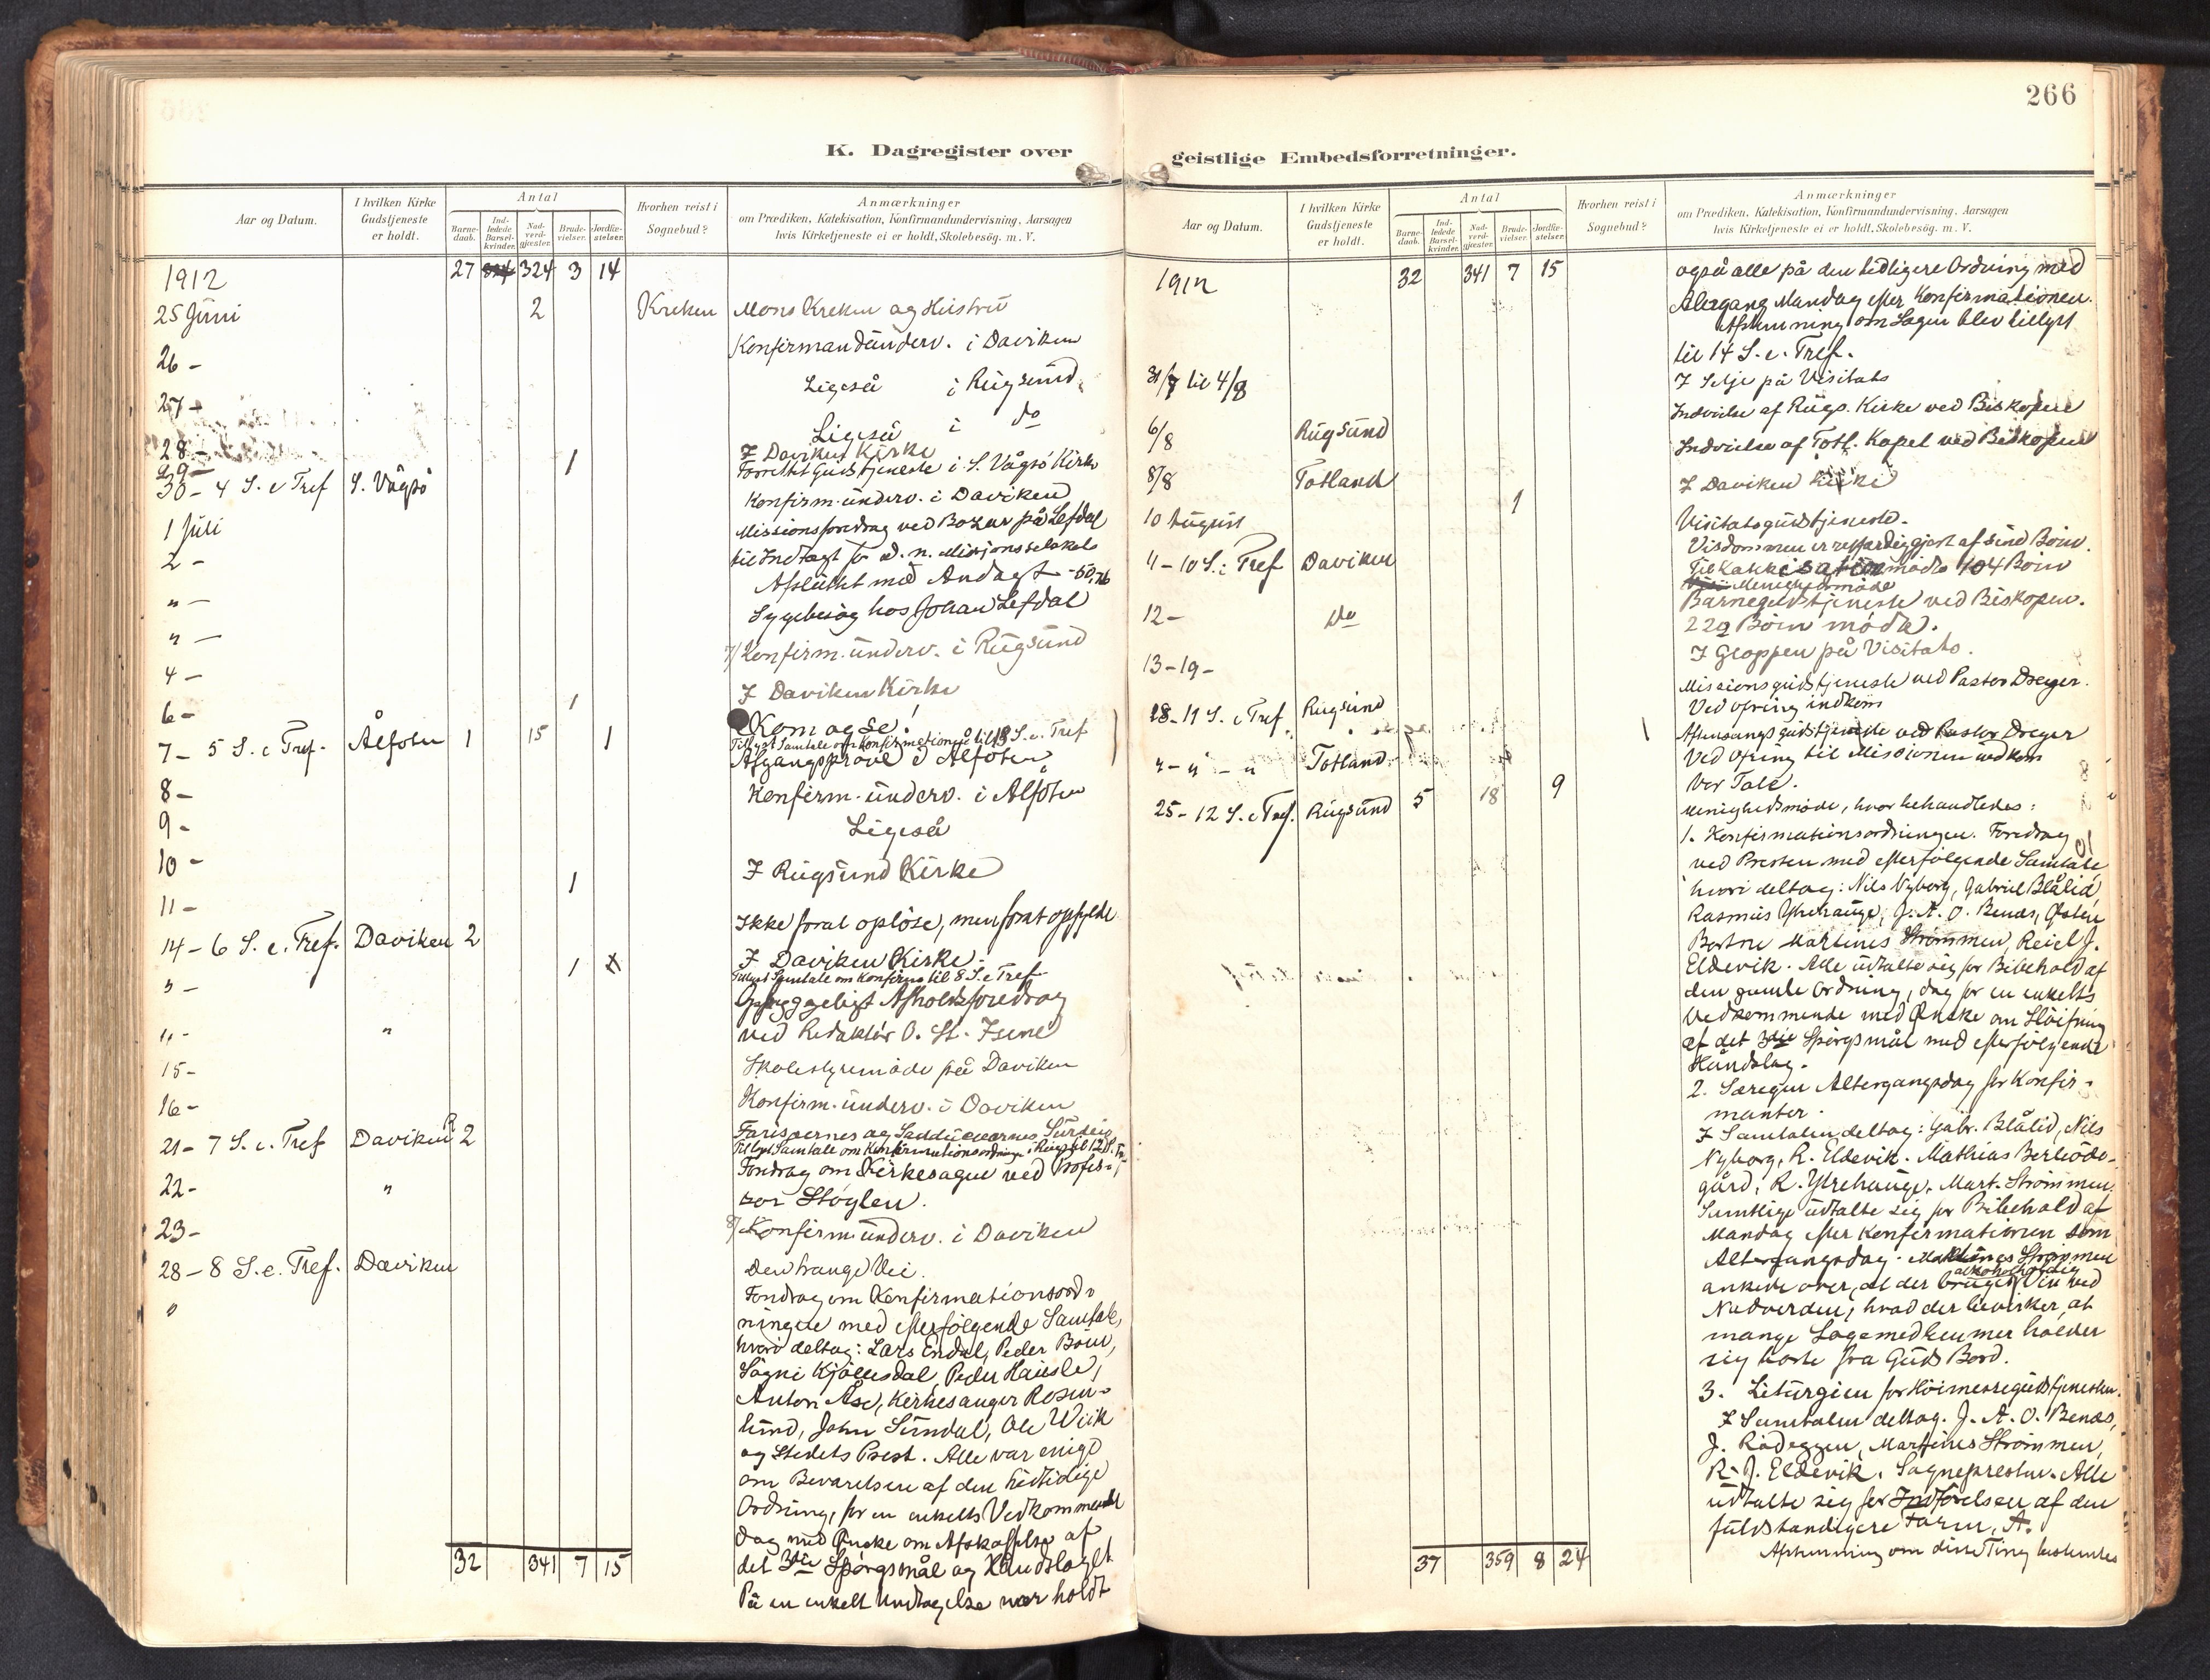 266
K. Dagregister over
geistlige Embedsforretninger.
Aar og Datum.
I hvilken Kirke
Gudstjeneste
er holdt.
Antal
Barne-
daab.
Ind-
ledede
Barsel-
kvinder.
Nad-
verd-
gjæster.
Brude-
vielser.
Jordfæ-
stelser.
Hvorhen reist i
Sognebud?
Anmærkninger
om Prædiken, Katekisation, Konfirmandundervisning, Aarsagen
hvis Kirketjeneste ei er holdt, Skolebesög. m. V.
1912 27 324 324 3 14
25 Juni 2 Kreken Mons Kreken og Hustru
26 - Konfirmandunderv. i Daviken
27 - Ligeså i Rugsund
28 - Ligeså i do
29 - 1 I Daviken Kirke
30 - 4 S. e Tref S. Vågsö Forrettet Gudstjeneste i S. Vågsö Kirke
1 Juli Konfirm. underv. i Daviken
2 - Missionsforedrag ved Bozar på Lefdal
til Indtægt for d. n. Misjonsselskab
" - Afsluttet med Andagt - 50,76
" - Sygebesög hos Johan Lefdal
4 - 7/ Konfirm. underv. i Rugsund
6 - 1 I Daviken Kirke
7 - 5 S. e Tref. Ålfoten 1 15 1 Kom og se!
Tillyst Samtale om Konfirmationen til 13 S. e. Tref
8 - Afgangspröve i Ålfoten
9 - Konfirm. underv. i Ålfoten
10 - Ligeså
11 - 1 I Rugsund Kirke
14 - 6 S. e. Tref. Daviken 2 Ikke for at oplöse, men for at opfylde
" - 1 I Daviken Kirke.
Tillyst Samtale om Konfirm. til 8 S. e Tref
" - " Opbyggeligt Afholdsforedrag
ved Redaktör O. St. Isene
15 - Skolestyremöde på Daviken
16 - Konfirm. underv. i Daviken
21 - 7 S. e. Tref Daviken 2 Farisæernes og Sadducæernes Surdeig
Tillyst Samtale om Konfirmationsordningen i Rugs til 12 S. e. Tr.
22 - " Foredrag om Kirkesagen ved Profes-
sor Støylen.
23 - 8/ Konfirm. underv. i Daviken
28 - 8 S. e. Tref. Daviken Den trange Vei.
" Foredrag om Konfirmationsord-
ningen med efterfölgende Samtale,
hvori deltog: Lars Endal, Peder Böen,
Sögni Kjölesdal, Peder Hausle,
Anton Åse, Kirkesanger Rosen-
lund, John Sundal, Ole Wiik
og Stedets Prest. Alle var enige
om Bevarelsen af den hidtidige
Ordning, for en enkelts Vedkommende
dog med Önske om Afskaffelse af
det 3die Spörgsmål og Håndslaget.
På en enkelt Undtagelse nær holdt
32 341 7 15
Aar og Datum.
I hvilken Kirke
Gudstjeneste
er holdt.
Antal
Barne-
daab.
Ind-
ledede
Barsel-
kvinder.
Nad-
verd-
gjæster.
Brude-
vielser.
Jordfæ-
stelser.
Hvorhen reist i
Sognebud?
Anmærkninger
om Prædiken, Katekisation, Konfirmandundervisning, Aarsagen
hvis Kirketjeneste ei er holdt, Skolebesög. m. V.
1912 32 341 7 15 også alle på den tidligere Ordning med
Altergang Mandag efter Konfirmationen.
Afstemning om Sagen blev tillyst
til 14 S. e. Tref.
31/7 til 4/8 I Selje på Visitats
6/8 Rugsund Indvielse af Rugs. Kirke ved Biskopen
8/8 Totland Indvielse af Totl. Kapel ved Biskopen
10 August 1 I Daviken Kirke
11 - 10 S. e Tref Daviken Visitatsgudstjeneste.
Visdommen er retfærdiggjort af sine Börn.
Til Katekisation mödte 104 Börn
Menighedsmöde
12 - do Barnegudstjeneste ved Biskopen.
229 Börn mödte.
13 - 19 - I Gloppen på Visitats.
18 - 11 S. e Tref Rugsund Missionsgudstjeneste ved Pastor Dreyer.
Ved ofring indkom
" - " - " Totland Aftensangsgudstjeneste ved Pastor Dreyer
Ved ofring til Missionen indkom
25 - 12 S. e Tref. Rugsund 5 18 9 Vor Tale.
Menighedsmöde, hvor behandledes:
1. Konfirmationsordningen. Foredrag
ved Presten med efterfölgende Samtale,
hvori deltog: Nils Nyborg, Gabriel Blålid,
Rasmus Ytrehauge, J. A. O. Benæs, Østen
Bortne Martinus Strömmen, Reiel J.
Eldevik. Alle udtalte sig for Bibehold af
den gamle Ordning, dog for en enkelts
Vedkommende med Önske om Slöifning
af det 3die Spörgsmål med efterfölgende
Håndslag.
2. Særegen Altergangsdag for Konfir-
manter.
I Samtalen deltog: Gabr. Blålid, Nils
Nyborg, R. Eldevik. Mathias Berleöde-
gård, R. Ytrehauge, Mart. Strömmen.
Samtlige udtalte sig for Bibehold af
Mandag efter Konfirmationen som
Altergangsdag. Martinus Strömmen
ankede over, at der bruges alkoholholdig Vin ved
Nadverden, hvad der bevirker, at
mange Logemedlemmer holder
sig borte fra Guds Bord.
3. Liturgien for Höimessegudstjenesten.
I Samtalen deltog. J. A. O. Benæs,
J. Rådeggen, Martinus Strömmen,
R. J. Eldevik, Sognepresten. Alle
udtalte sig for Indförelsen af den
fuldstændigere Form, A.
Afstemning om disse Ting bestemtes
37 359 8 24